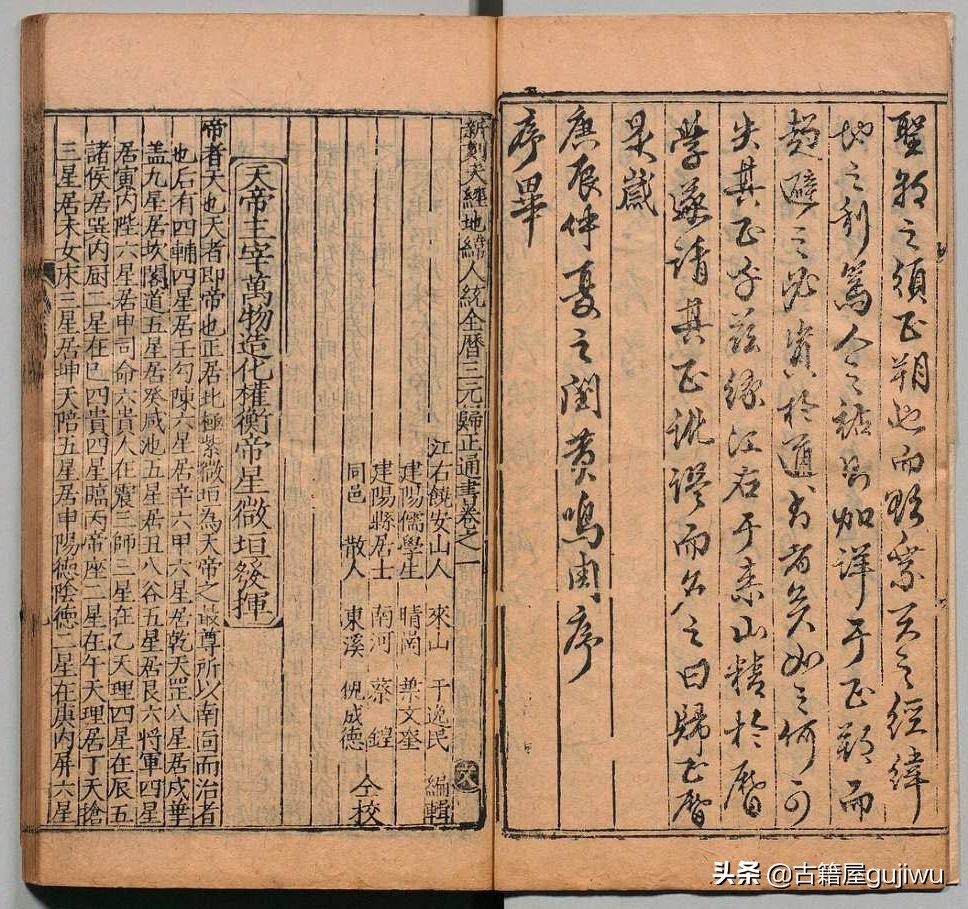 聖教之須正朔也而歌案天之經緯
地之利篤人之祜則加詳于正朔而
趨避之必資於通書者矣如之何可
失其正乎茲緣江右于來山精於曆
學遂請其正訛謬而名之曰歸正曆
是歲
庚辰仲夏之閏黃鳴周序
序畢
新刻天經地緯人統全曆三元歸正通書卷之一
江右饒安山人 來山 于逸民 編輯
建陽儒學生 晴崗 葉文奎
建陽縣居士 南河 蔡鍠
同邑 散人 東溪 倪成德 仝校
天帝主宰萬物造化權衡帝星微垣發揮
帝者天也天者即帝也正居北極紫微垣為天帝之最尊所以南面而治者
也后有四輔四星居壬勾陳六星居辛六甲六星居乾天罡八星居戌華
盖九星居坎閣道五星居癸咸池五星居丑八谷五星居艮六將軍四星
居寅內陛六星居申司命六貴人在震三師三星在乙天理四星在辰五
諸侯居巽內厨二星在巳四貴四星臨丙帝座二星在午天理居丁天搶
三星居未女床三星居坤天陪五星居申陽德陰德二星在庚內屏六星
头条 @古籍屋gujiwu